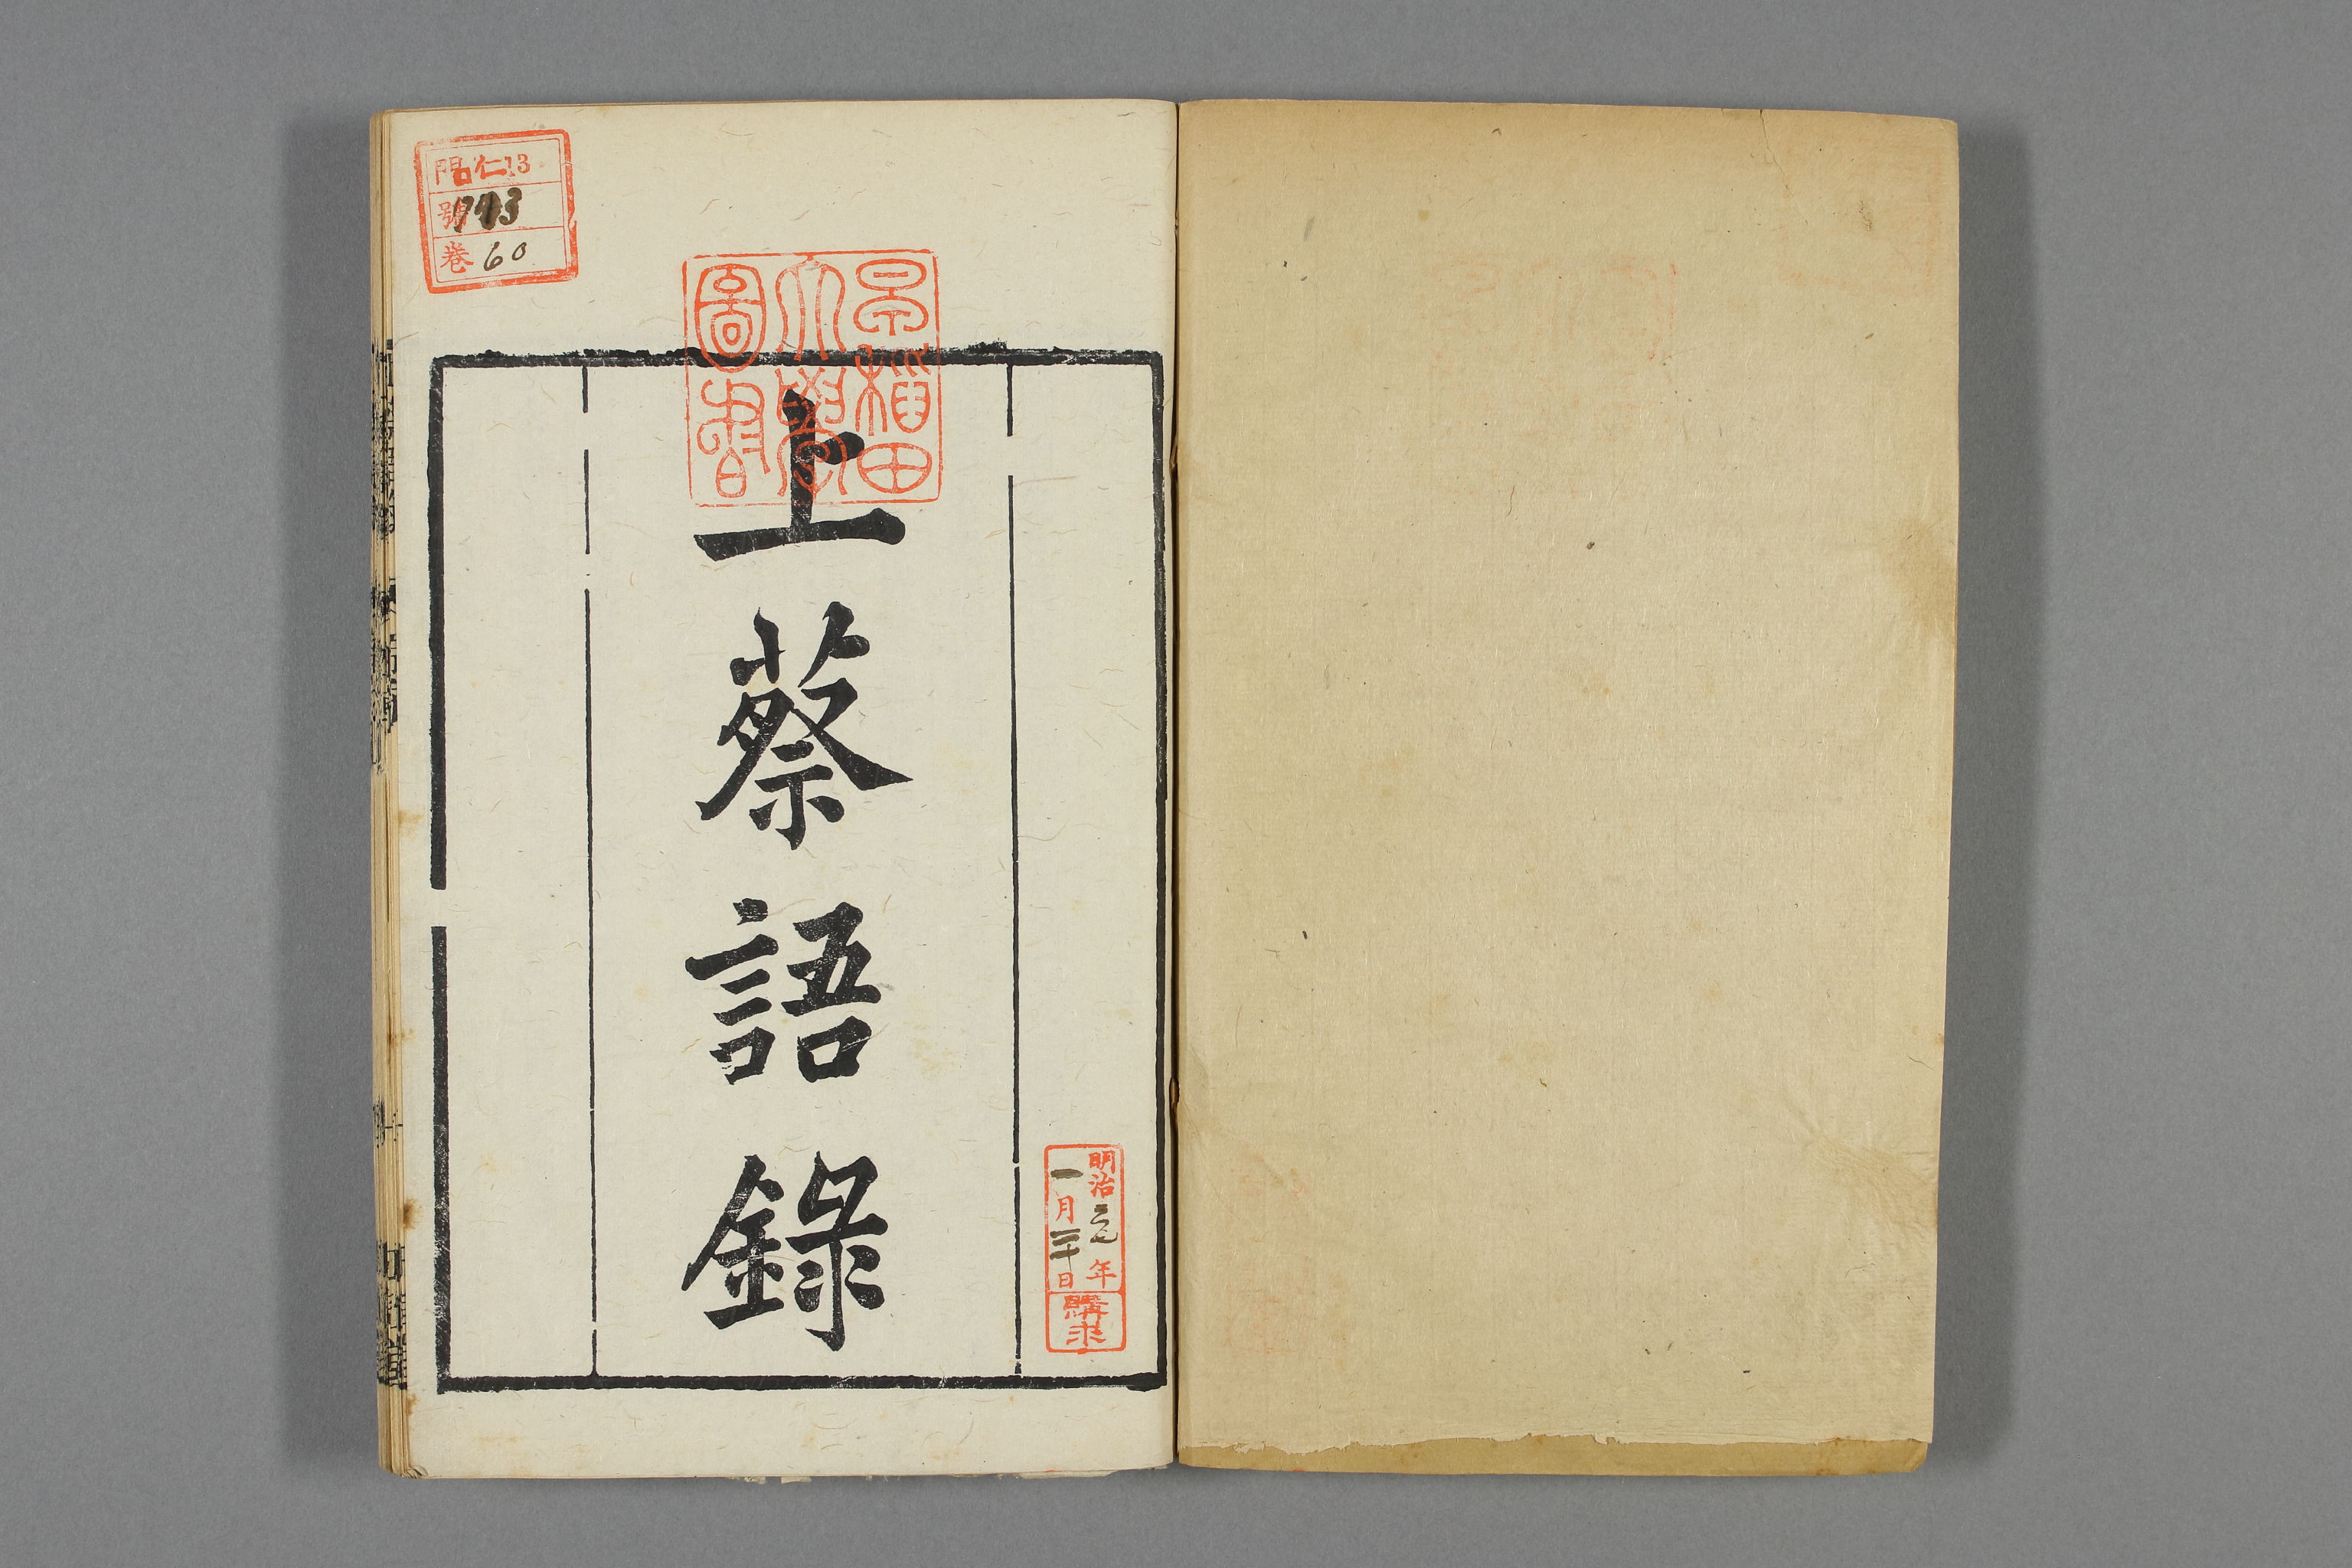 上蔡語錄
早稻田
大學
圖書
門 仁13
號 773
卷 60
明治三七年
一月三十日
購求